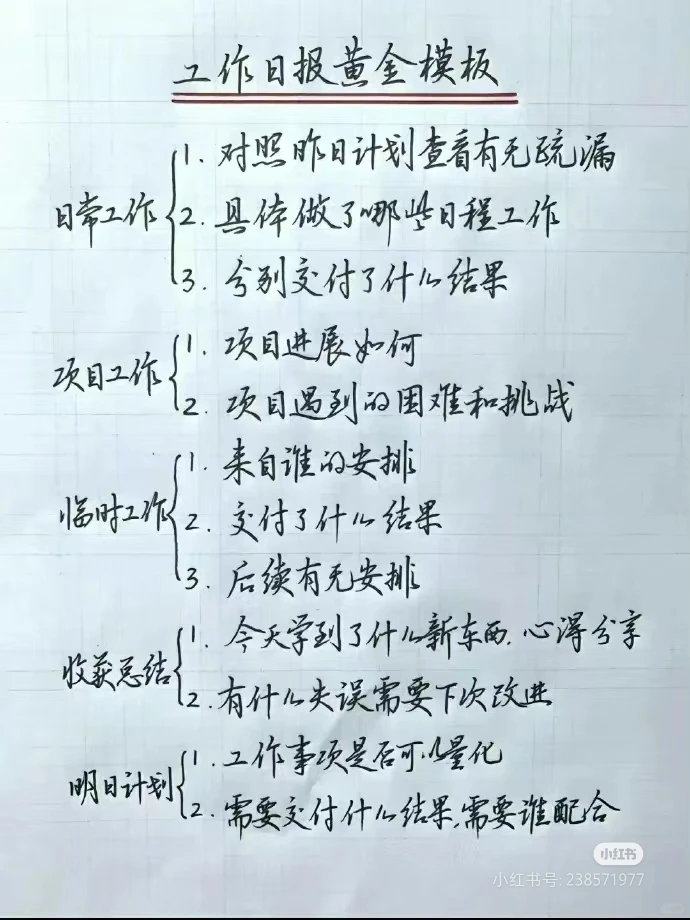 工作日报黄金模板
日常工作
1. 对照昨日计划查看有无疏漏
2. 具体做了哪些日程工作
3. 分别交付了什么结果
项目工作
1. 项目进展如何
2. 项目遇到的困难和挑战
临时工作
1. 来自谁的安排
2. 交付了什么结果
3. 后续有无安排
收获总结
1. 今天学到了什么新东西.心得分享
2. 有什么失误需要下次改进
明日计划
1. 工作事项是否可以量化
2. 需要交付什么结果,需要谁配合
小红书
小红书号: 238571977